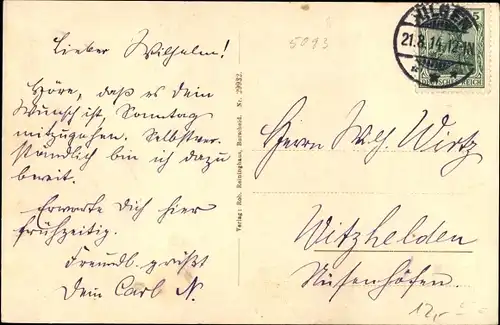 Lieber Wilhelm!
Höre, daß es dein
Wunsch ist, Sonntag
mitzugehen. Selbstver-
ständlich bin ich dazu
bereit.
Erwarte Dich hier
frühzeitig.
Freundl. grüßt
Dein Carl N.
Verlag: Rob. Reminghaus, Remscheid. Nr. 29932.
5093
21.8.14. 12-1N
5
DEUTSCHES REICH
Herrn Wilh. Wirtz
Witzhelden
Nüsenhöfen.
12,-